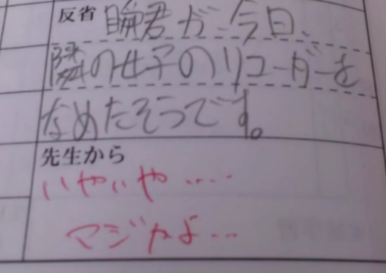 反省 瞬君が、今日、
隣の女子のリコーダーを
なめたそうです。
先生から
いやいや‥‥
マジかよ…